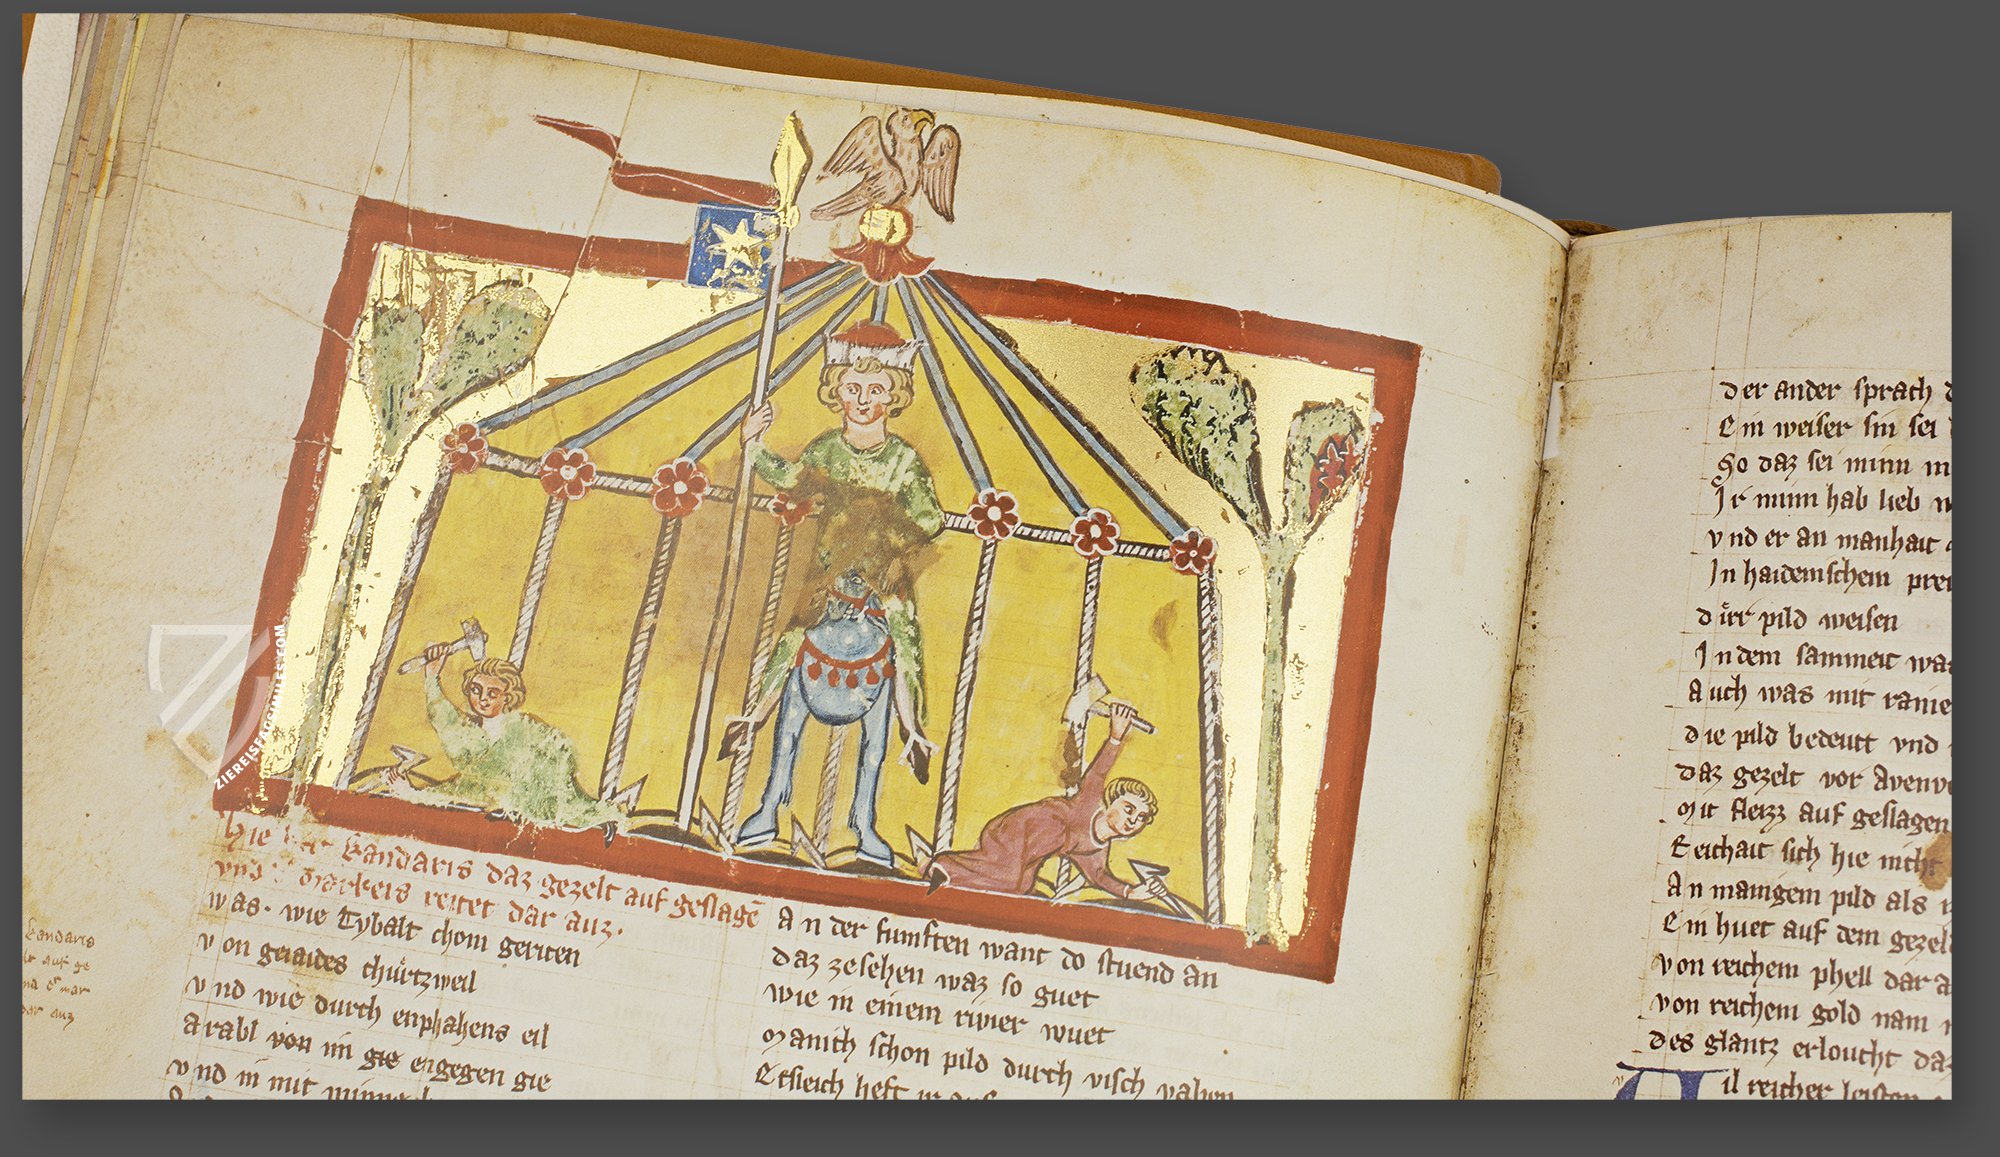 Hie Kandaris daz gezelt auf geslagē
vnd Markeis reitet dar auz.
was. wie Tybalt chom geriten
von geiaides chürtzweil
vnd wie durch enphahens eil
arabl von im gie engegen gie
vnd in mit
An der fumften want do stuend an
daz zesehen waz so guet
wie in einem rivier wuet
Manich schon pild durch visch vahen
Etsleich heft
der ander sprach
Ein weiser sin sei
So daz sei minn
Ir minn hab lieb
vnd er an manhait
In haidenischem
dürr pild weisen
In dem sammeit
Auch was mit
die pild bedeutt vnd
daz gezelt vor
Mit fleizz auf geslagen
Leichait sich hie nicht
An manigem pild als
Ein huet auf dem gezelt
von reichem phell dar
von reichem gold nam
des glantz erloucht
Vil reicher
kandaris
auf ge
mar
dar auz
ZIEREISFACSIMILES.COM